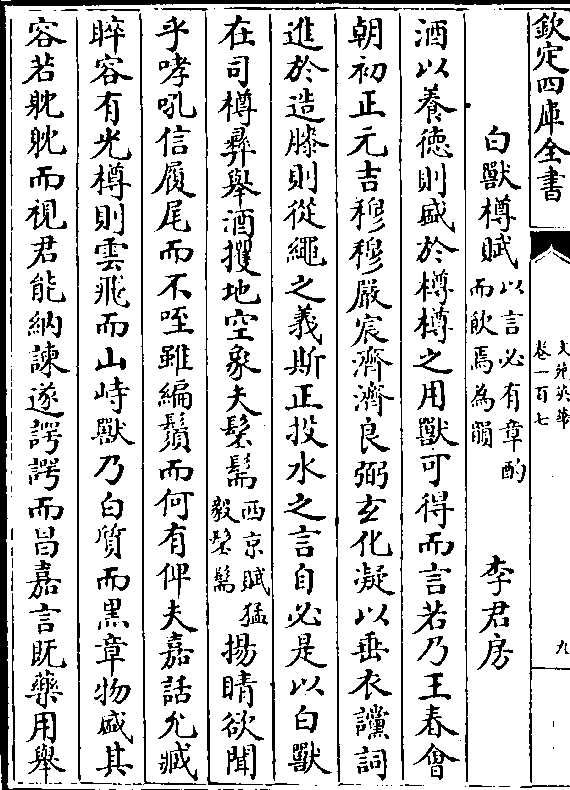 欽定四庫全書
文苑英華
卷一百七
九
白獸樽賦以言必有章酌而飲焉為韻 李君房
酒以養徳則盛於樽樽之用獸可得而言若乃王春會
朝初正元吉穆穆嚴宸濟濟良弼玄化凝以垂衣讜詞
進於造膝則從繩之義斯正投水之言自必是以白獸
在司樽彞舉酒攫地空象夫髬髵西京賦猛毅髬髵揚睛欲聞
乎哮吼信履尾而不咥雖編鬚而何有俾夫嘉話允臧
睟容有光樽則雲飛而山峙獸乃白質而黒章物盛其
容若眈眈而視君能納諫遂諤諤而昌嘉言既藥用舉